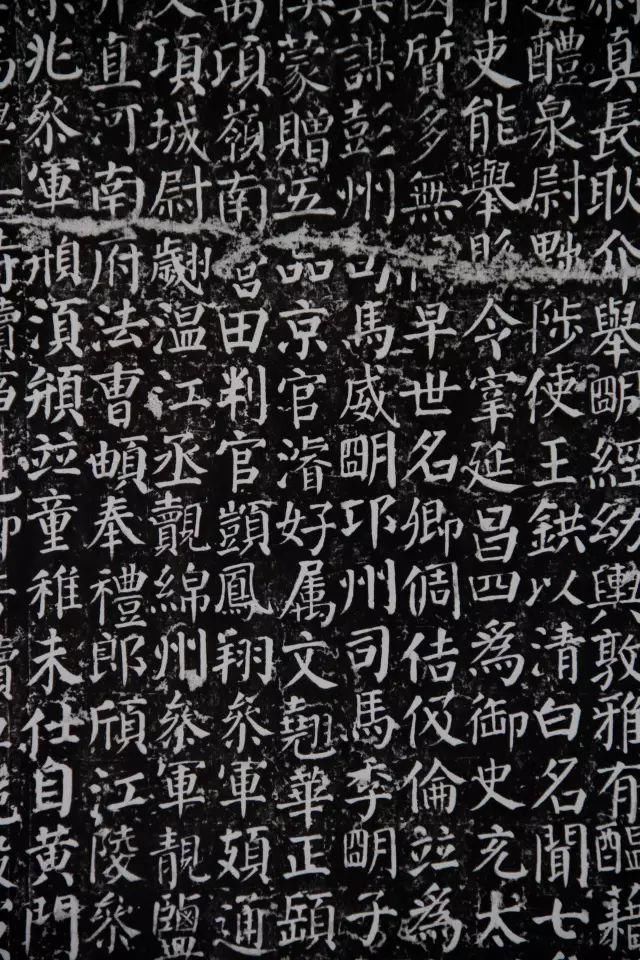 真長耿介舉眀經幼輿敦雅有醖藉
醴泉尉黜陟使王鉷以清白名聞七
吏能舉縣令宰延昌四為御史充太
國質多無早世名卿倜佶伋倫並為
謀彭州司馬威眀邛州司馬季眀子
蒙贈五品京官濬好屬文翹華正
萬項嶺南營田判官顗鳳翔參軍頗通
項城尉翽温江丞覿綿州參軍靚鹽
直河南府法曹頔奉禮郎頎江陵參
兆參軍須並童稚未仕自黄門